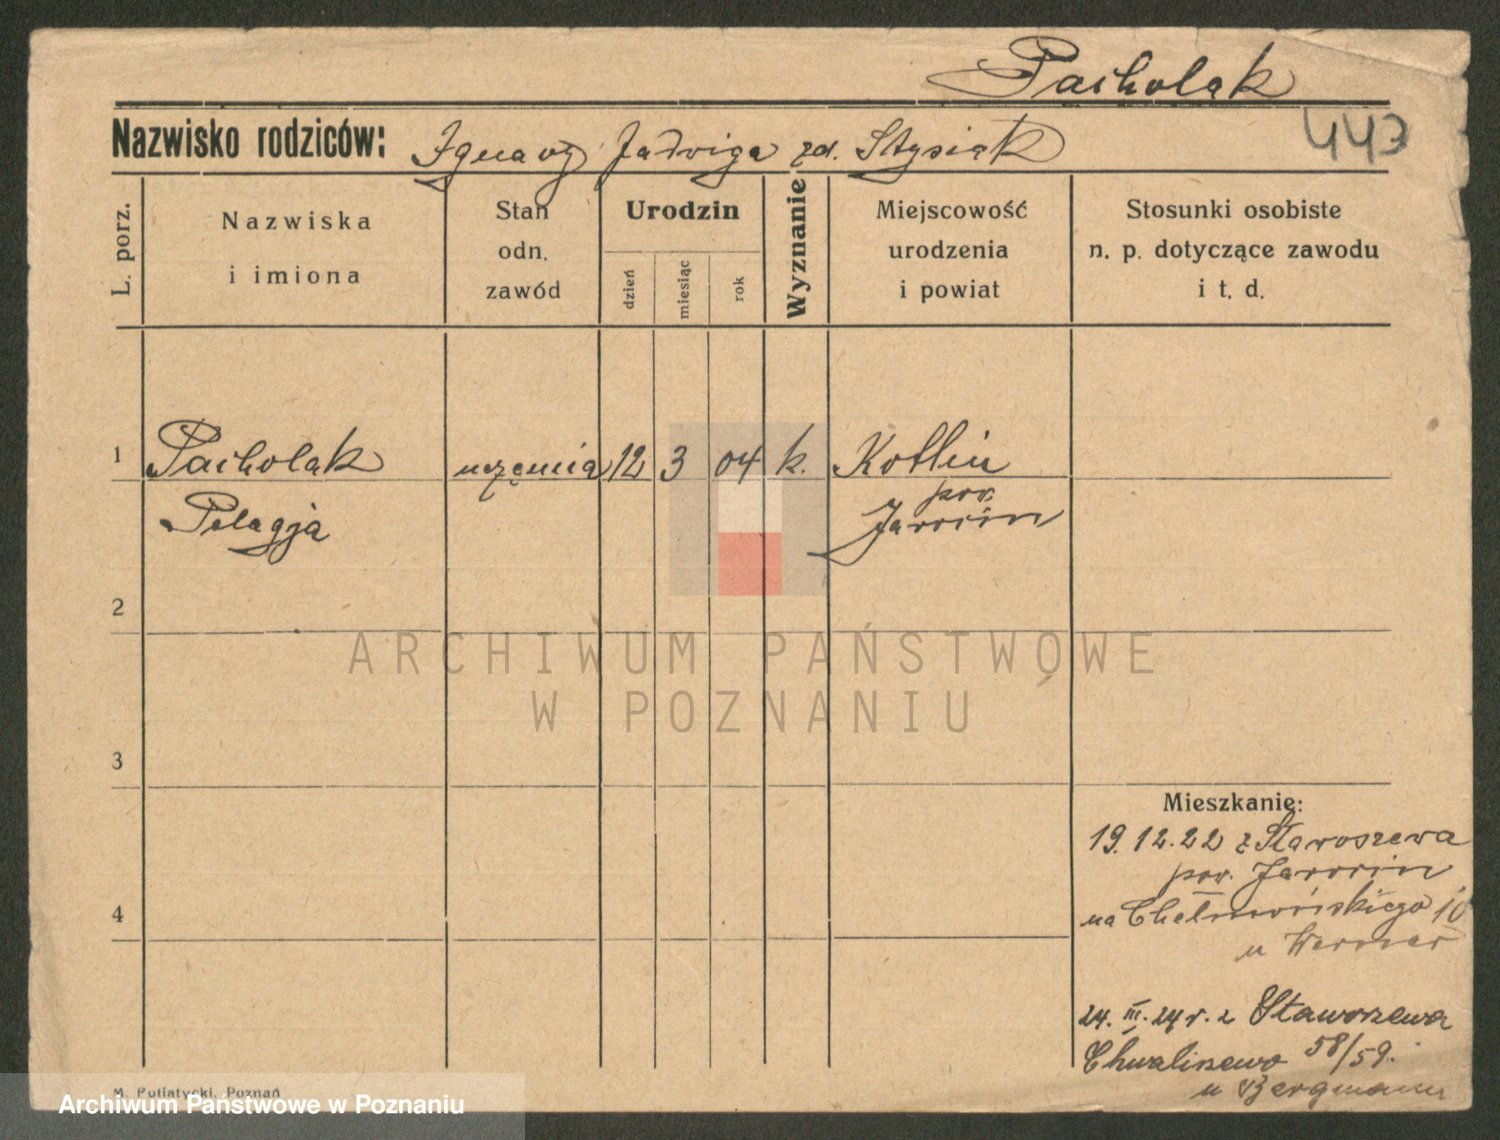 Pacholak
443
Nazwisko rodziców: Ignacy Jadwiga zd. Stysiak
L. porz.
Nazwiska
i imiona
Stan
odn.
zawód
Urodzin
dzień
miesiąc
rok
Wyznanie
Miejscowość
urodzenia
i powiat
Stosunki osobiste
n. p. dotyczące zawodu
i t. d.
1 Pacholak uczennica 12 3 04 k. Kotlin
Pelagja
pow.
Jarocin
2
ARCHIWUM PAŃSTWOWE
W POZNANIU
3
Mieszkanie:
19. 12. 22 z Staroszewa
pow. Jarocin
4
na Chełmońskiego 10
u Werner
24. III. 24 r. z Staworzewa
Chwaliszewo 58/59.
u Bergmann
M. Putiatycki, Poznań
Archiwum Państwowe w Poznaniu